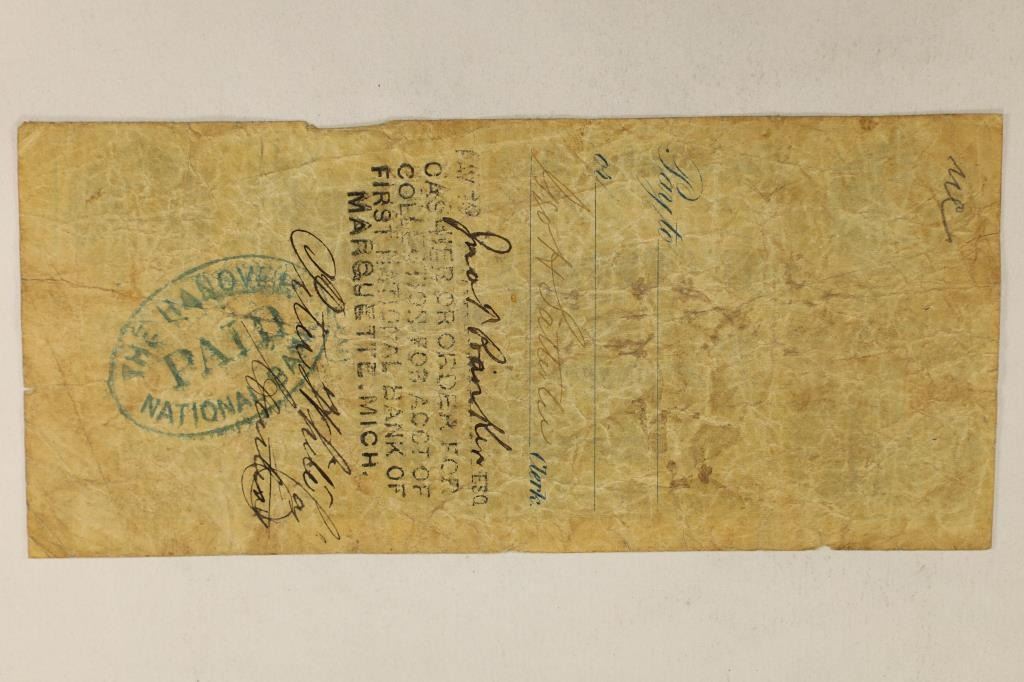 Pay to
or
Clerk.
PAY TO Jno J Rankin ESQ
CASHIER OR ORDER FOR
COLLECTION FOR ACCT OF
FIRST NATIONAL BANK OF
MARQUETTE. MICH.
Cashier
THE HANOVER
PAID
NATIONAL BANK